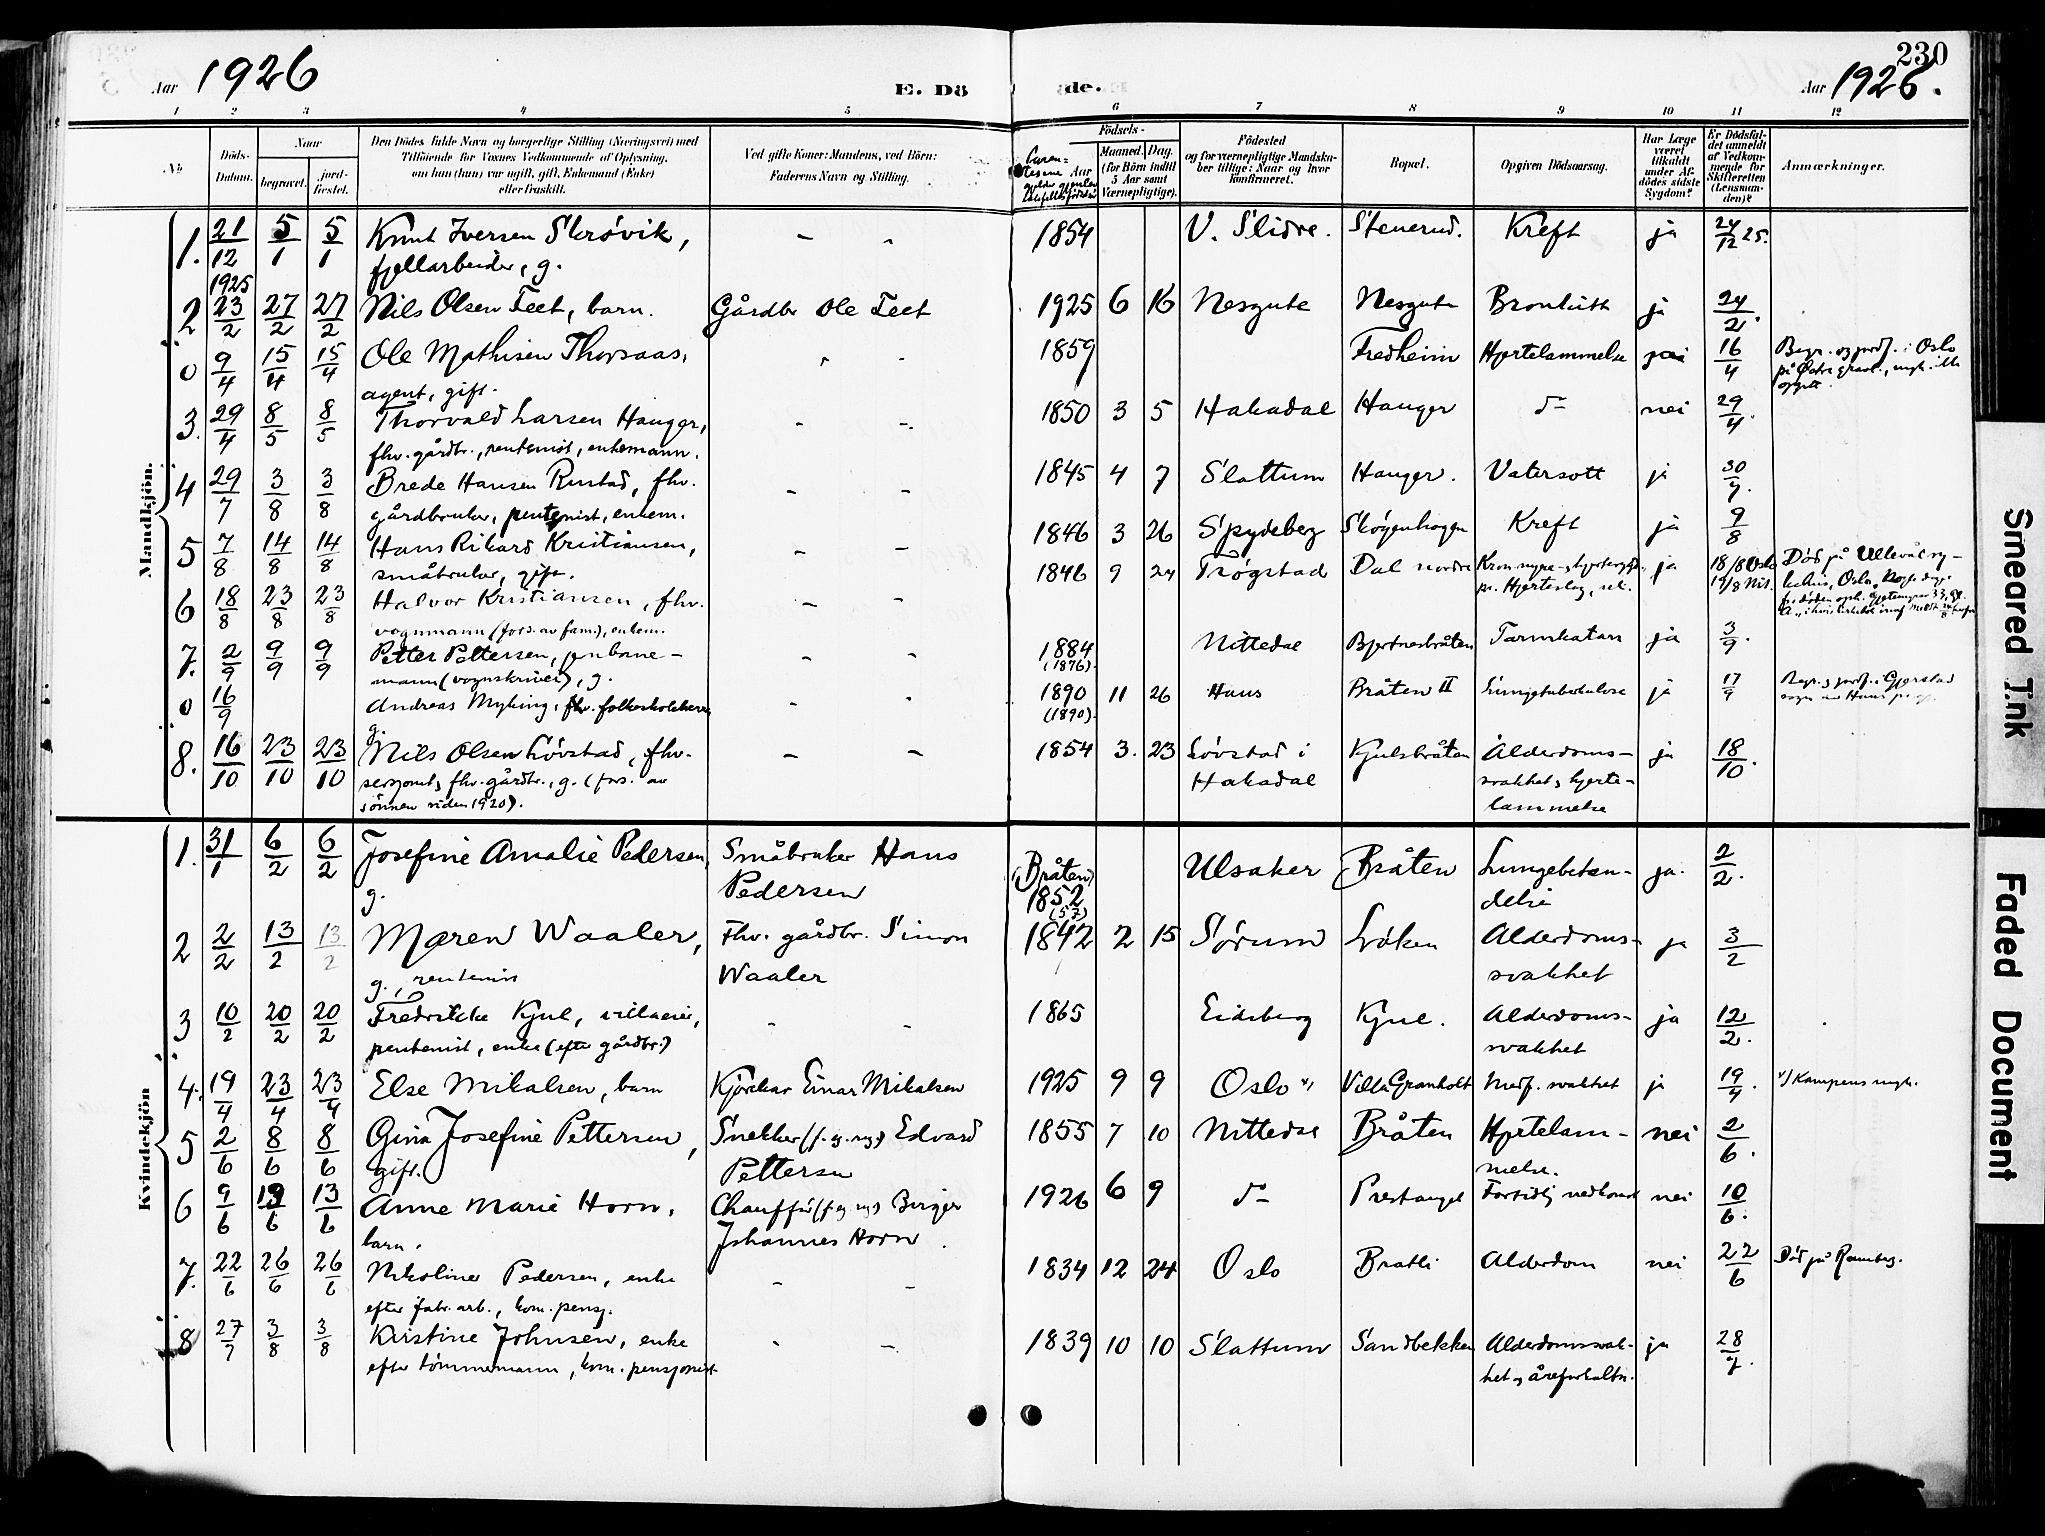 Aar 1926
E. Döde.
230
Aar 1926.
1 2 3 4 5 6 7 8 9 10 11 12
No
Döds-Datum.
Naar
begravet.
jord-fæstet.
Den Dödes fulde Navn og borgerlige Stilling (Næringsvei) med
Tilföiende for Voxnes Vedkommende af Oplysning,
om han (hun) var ugift, gift, Enkemand (Enke)
eller fraskilt.
Ved gifte Koner: Mandens, ved Börn:
Faderens Navn og Stilling.
Födsels-
Aar
Maaned. Dag.
(for Börn indtil
5 Aar samt
Værnepligtige).
Födested
og for værnepligtige Mandska-
ber tillige: Naar og hvor
konfirmeret.
Bopæl.
Opgiven Dödsaarsag.
Har Læge
været
tilkaldt
under Af-
dödes sidste
Sygdom?
Er Dödsfal-
det anmeldt
af Vedkom-
mende for
Skifteretten
(Lensman-
den)?
Anmærkninger.
Mandkjön.
1. 21/12 1925 5/1 5/1 Knut Iversen Skrøvik, - - 1854 V. Slidre. Stenerud. Kreft ja 24/12 25.
fjellarbeider, g.
2 23/2 27/2 27/2 Nils Olsen Teet, barn. Gårdbr Ole Teet 1925 6 16 Nesgute Nesgute Bronkitt ja 24/2.
0 9/4 15/4 15/4 Ole Mathisen Thorsaas, 1859 Fredheim Hjertelammelse 16/4 Begr. og jordf. i Oslo
agent, gift. på Østre gravl.,
3. 29/4 8/5 8/5 Thorvald Larsen Hauger, - - 1850 3 5 Hakadal Hauger d- nei 29/4.
fhv. gårdbr., rentenist, enkemann.
4 29/7 3/8 3/8 Brede Hansen Rustad, fhv. - - 1845 4 7 Slattum Hauger. Vatersott ja 30/7.
gårdbruker, rentenist, enkem.
5 7/8 14/8 14/8 Hans Rikard Kristiansen, - - 1846 3 26 Spydeberg Skogenhagen Kreft ja 9/8
småbruker, gift.
6 18/8 23/8 23/8 Halvor Kristiansen, fhv. - - 1846 9 24 Trøgstad Dal nordre ja 18/8 Oslo 19/8 Nit. Død på Ullevål sy-
vognmann (fors. av fam.), enkem. pr. Hjerteslag,
7. 2/9 9/9 9/9 Petter Pettersen, jernbane- - - 1884 (1876). Nittedal Bjertnesbråten Tarmkatarr ja 3/9.
mann (vognskriver), g.
0 16/9 Andreas Myking, fhv. folkeskolelærer - - 1890 (1890). 11 26 Hans Bråten II Lungetuberkulose ja 17/9 Begr. og jordf. i Gjerstad
g.
8. 16/10 23/10 23/10 Nils Olsen Løvstad, fhv. - - 1854 3. 23 Løvstad i Kjulsbråten Alderdoms- ja 18/10.
sersjant, fhv. gårdbr., g. (fors. av Hakadal svakhet, hjerte-
sønnen siden 1920). lammelse
Kvindekjön
1. 31/1 6/2 6/2 Josefine Amalie Pedersen, Småbruker Hans (Bråten) 1852 (57) Ulsaker Bråten Lungebeten- ja. 2/2.
g. Pedersen delse
2 2/2 13/2 13/2 Maren Waaler, Fhv. gårdbr. Simon 1842 2 15 Sørum Løken Alderdoms- ja 3/2
g., rentenist Waaler svakhet
3 10/2 20/2 20/2 Fredrikke Kjul, villaeier, - - 1865 Eidsberg Kjul. Alderdoms- ja 12/2.
rentenist, enke (efter gårdbr.) svakhet
4. 19/4 23/4 23/4 Else Mikalsen, barn Kjørekar Einar Mikalsen 1925 9 9 Oslo x) Villa Granholt Medf. svakhet ja 19/4. x) Kampens mgh.
5 2/6 8/6 8/6 Gina Josefine Pettersen, Snekker (f. g. ug.) Edvard 1855 7 10 Nittedal Bråten Hjertelam- nei 2/6.
gift. Pettersen melse.
6 9/6 13/6 13/6 Anne Marie Horn, Chauffør (f. g. ug.) Birger 1926 6 9 d- Prestangel Fortidlig nedkomst nei 10/6.
barn. Johannes Horn.
7. 22/6 26/6 26/6 Nikoline Pedersen, enke - - 1834 12 24 Oslo Bratli Alderdom nei 22/6 Død på Ramberg.
efter fabr. arb., kom. pensj.
8 27/7 3/8 3/8 Kristine Johnsen, enke - - 1839 10 10 Slattum Sandbekken Alderdomssvak- ja 28/7.
efter tømmermann, kom. pensjonist het og åreforkalkn.
Smeared Ink
Faded Document